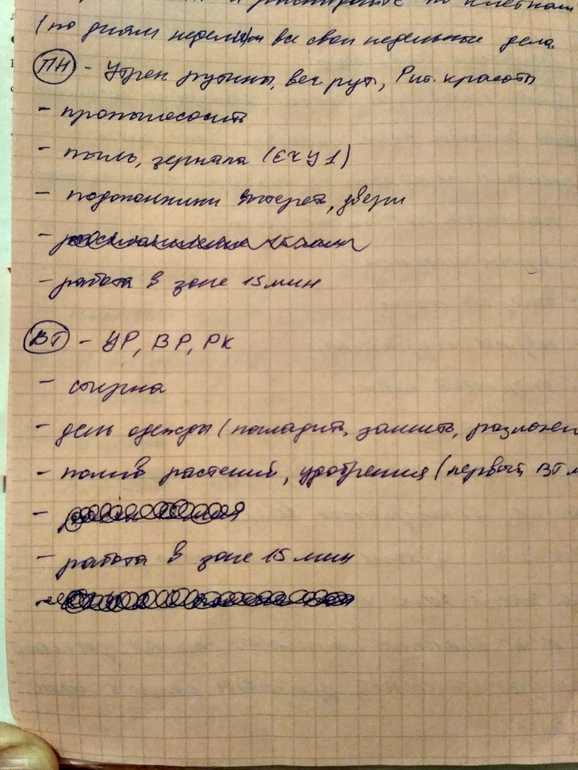 (по дням недели) все свои недельные дела
ПН - Утрен рутины, веч рут, Рит. красоты
- пропылесосить
- пыль, зеркала (
- подоконники вытереть, двери
-
- работа в зоне 15 мин
ВТ - УР, ВР, РК
- стирка
- день одежды (погладить, зашить, разложить
- полив растений, удобрения (первый ВТ м
-
- работа в зоне 15 мин